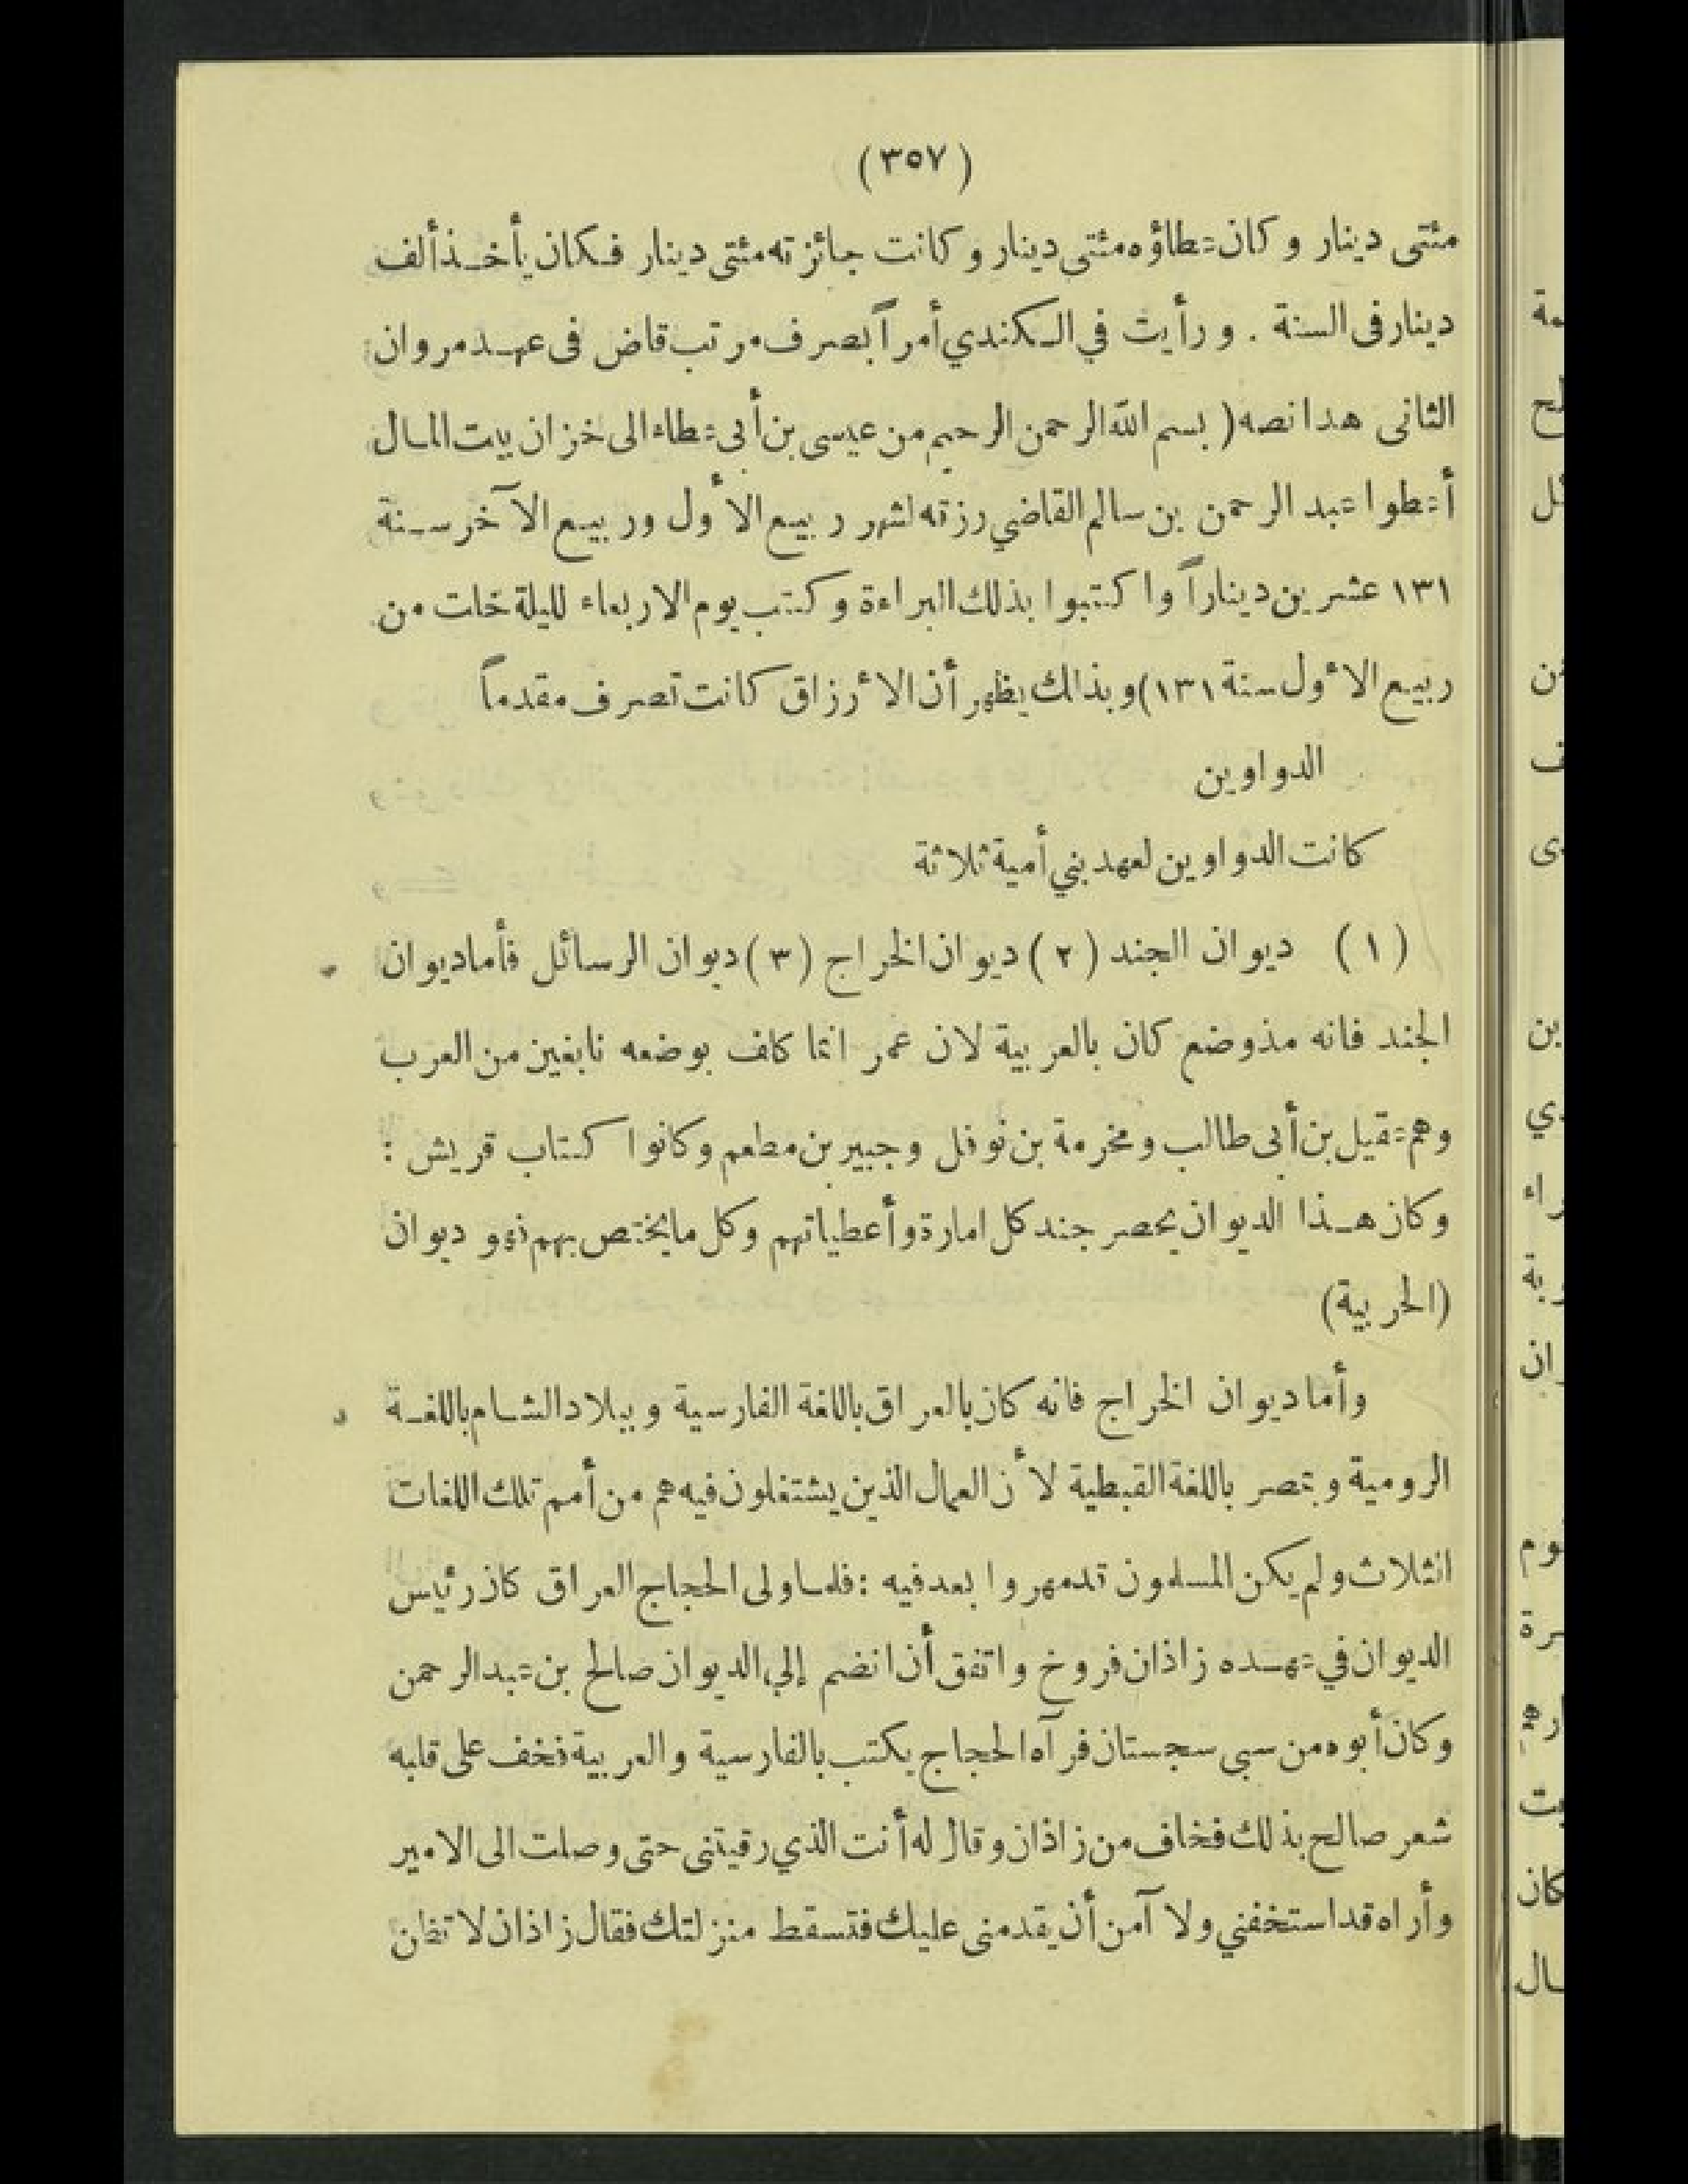 (٣٥٧)
مئتى دينار وكان عطاؤه مئتى دينار وكانت جائزته مئتى دينار فكان يأخذ ألف
دينار فى السنة . ورأيت في الكندي أمراً بصرف مرتب قاض فى عهد مروان
الثانى هدا نصه ( بسم الله الرحمن الرحيم من عيسى بن أبى عطاء الى خزان بيت المال
أعطوا عبد الرحمن بن سالم القاضي رزقه لشهر ربيع الأول وربيع الآخر سنة
١٣١ عشرين ديناراً واكتبوا بذلك البراءة وكتب يوم الاربعاء لليلة خلت من
ربيع الأول سنة ١٣١) وبذلك يظهر أن الأرزاق كانت تصرف مقدماً
الدواوين
كانت الدواوين لعهد بني أمية ثلاثة
(١) ديوان الجند (٢) ديوان الخراج (٣) ديوان الرسائل فأما ديوان
الجند فانه مذ وضع كان بالعربية لان عمر انما كلف بوضعه نابغين من العرب
وهم عقيل بن أبى طالب ومخرمة بن نوفل وجبير بن مطعم وكانوا كتاب قريش :
وكان هذا الديوان يحصر جند كل امارة وأعطياتهم وكل ما يختص بهم فهو ديوان
(الحربية)
وأما ديوان الخراج فانه كان بالعراق باللغة الفارسية وببلاد الشام باللغة
الرومية وبمصر باللغة القبطية لأن العمال الذين يشتغلون فيه هم من أمم تلك اللغات
الثلاث ولم يكن المسلمون قد مهروا بعد فيه : فلما ولى الحجاج العراق كان رئيس
الديوان في عهده زاذان فروخ واتفق أن انضم إلي الديوان صالح بن عبد الرحمن
وكان أبوه من سبى سجستان فرآه الحجاج يكتب بالفارسية والعربية فخف على قلبه
شعر صالح بذلك فخاف من زاذان وقال له أنت الذي رقيتنى حتى وصلت الى الامير
وأراه قد استخفني ولا آمن أن يقدمنى عليك فتسقط منزلتك فقال زاذان لا تظن